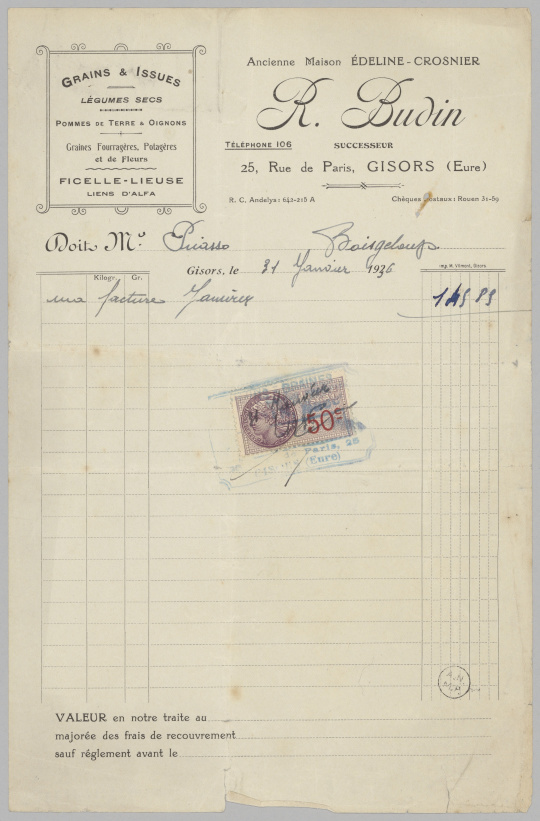 GRAINS & ISSUES
LÉGUMES SECS
POMMES DE TERRE & OIGNONS
Graines Fourragères, Potagères
et de Fleurs
FICELLE-LIEUSE
LIENS D'ALFA
Ancienne Maison ÉDELINE-CROSNIER
R. Budin
TÉLÉPHONE 106 SUCCESSEUR
25, Rue de Paris, GISORS (Eure)
R. C. Andelys : 642-215 A Chèques Postaux : Rouen 31-59
Doit M. Picasso Boisgeloup
Gisors, le 31 Janvier 1936
Imp. H. Vilment, Gisors
Kilogr. Gr.
ma facture Janvier
GRAINES
Janvier
50c
Paris, 25
(Eure)
A.N.
M.P.
VALEUR en notre traite au
majorée des frais de recouvrement
sauf réglement avant le